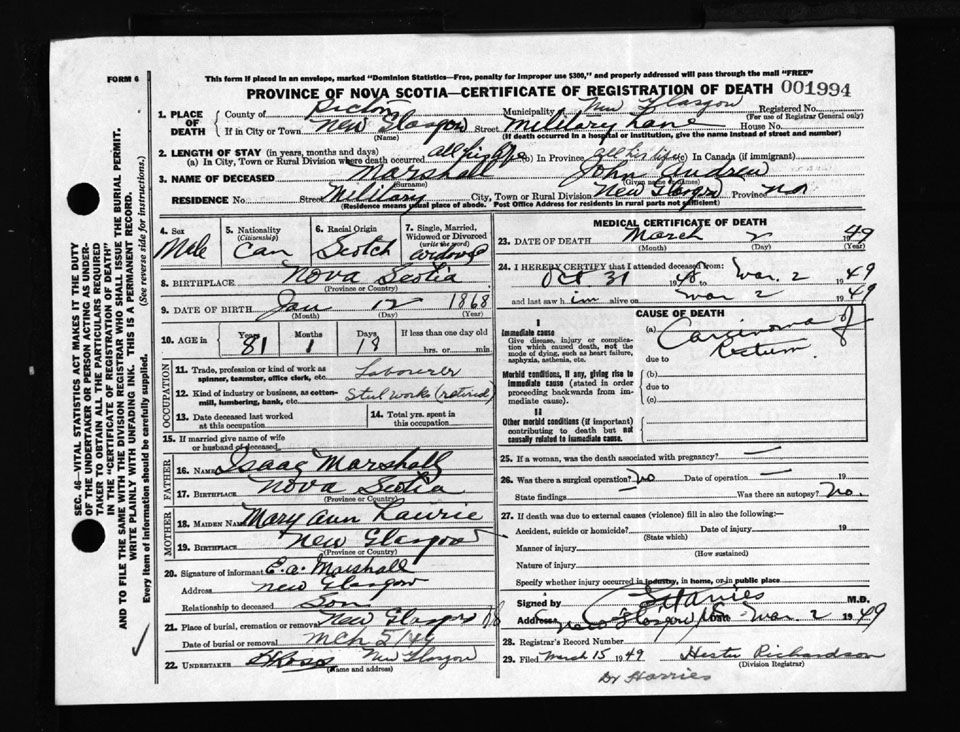 FORM 6
This form if placed in an envelope, marked "Dominion Statistics—Free, penalty for improper use $300," and properly addressed will pass through the mail "FREE"
PROVINCE OF NOVA SCOTIA—CERTIFICATE OF REGISTRATION OF DEATH 001994
1. PLACE OF DEATH
County of Pictou Municipality New Glasgow Registered No.
(For use of Registrar General only)
If in City or Town New Glasgow Street Military Lane House No.
(Name) (If death occurred in a hospital or institution, give the name instead of street and number)
2. LENGTH OF STAY (in years, months and days)
(a) In City, Town or Rural Division where death occurred all his life (b) In Province all his life (c) In Canada (if immigrant)
3. NAME OF DECEASED Marshall John Andrew
(Surname) (Given name or names)
RESIDENCE No. Street Military City, Town or Rural Division New Glasgow Province N.S.
(Residence means usual place of abode. Post Office Address for residents in rural parts not sufficient)
4. Sex Male
5. Nationality (Citizenship) Can
6. Racial Origin Scotch
7. Single, Married, Widowed or Divorced (write the word) widowed
8. BIRTHPLACE Nova Scotia
(Province or Country)
9. DATE OF BIRTH Jan 12 1868
(Month) (Day) (Year)
10. AGE in Years 81 Months 1 Days 18 If less than one day old
hrs. or min.
OCCUPATION
11. Trade, profession or kind of work as spinner, teamster, office clerk, etc. Labourer
12. Kind of industry or business, as cotton-mill, lumbering, bank, etc. Steel works (retired)
13. Date deceased last worked at this occupation
14. Total yrs. spent in this occupation
15. If married give name of wife or husband of deceased
FATHER
16. Name Isaac Marshall
17. Birthplace Nova Scotia
(Province or Country)
MOTHER
18. MAIDEN NAME Mary Ann Lawrie
19. BIRTHPLACE New Glasgow
(Province or Country)
20. Signature of informant E. A. Marshall
Address New Glasgow
Relationship to deceased Son
21. Place of burial, cremation or removal New Glasgow
Date of burial or removal Mch 5/49
22. UNDERTAKER New Glasgow
(Name and address)
MEDICAL CERTIFICATE OF DEATH
23. DATE OF DEATH March 2 1949
(Month) (Day)
24. I HEREBY CERTIFY that I attended deceased from:
Oct 31 1948 to Mar. 2 1949
and last saw him alive on Mar 2 1949
CAUSE OF DEATH
I
Immediate cause
Give disease, injury or complication which caused death, not the mode of dying, such as heart failure, asphyxia, asthenia, etc.
(a) Carcinoma of
Rectum.
due to
Morbid conditions, if any, giving rise to immediate cause (stated in order proceeding backwards from immediate cause).
(b)
due to
(c)
II
Other morbid conditions (if important) contributing to death but not causally related to immediate cause.
25. If a woman, was the death associated with pregnancy? —
26. Was there a surgical operation? No Date of operation — 19
State findings Was there an autopsy? No.
27. If death was due to external causes (violence) fill in also the following:—
Accident, suicide or homicide? Date of injury 19
(State which)
Manner of injury
(How sustained)
Nature of injury
Specify whether injury occurred in industry, in home, or in public place
Signed by Harries M.D.
Address New Glasgow NS Date Mar. 2 1949
28. Registrar's Record Number
29. Filed March 15 1949 Hester Richardson
(Division Registrar)
Dr Harries
SEC. 46—VITAL STATISTICS ACT MAKES IT THE DUTY
OF THE UNDERTAKER OR PERSON ACTING AS UNDER-
TAKER TO OBTAIN ALL THE PARTICULARS REQUIRED
IN THE "CERTIFICATE OF REGISTRATION OF DEATH"
AND TO FILE THE SAME WITH THE DIVISION REGISTRAR WHO SHALL ISSUE THE BURIAL PERMIT.
WRITE PLAINLY WITH UNFADING INK. THIS IS A PERMANENT RECORD.
Every item of information should be carefully supplied. (See reverse side for instructions.)